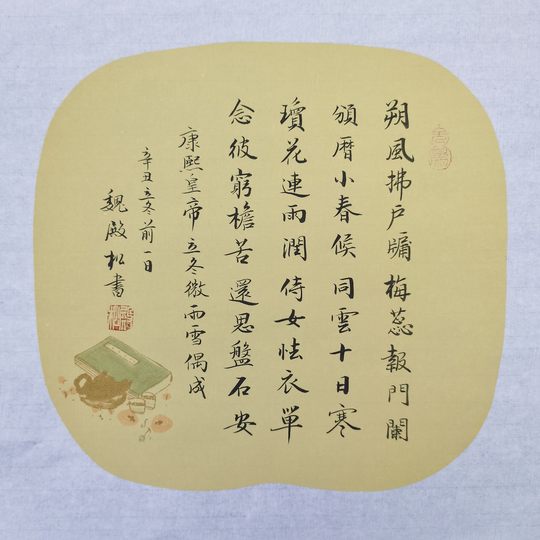 朔風拂戶牖梅蕊報門闌
頒曆小春候同雲十日寒
瓊花連雨潤侍女怯衣單
念彼窮檐苦還思盤石安
康熙皇帝立冬微雨雪偶成
辛丑立冬前一日
魏殿松書